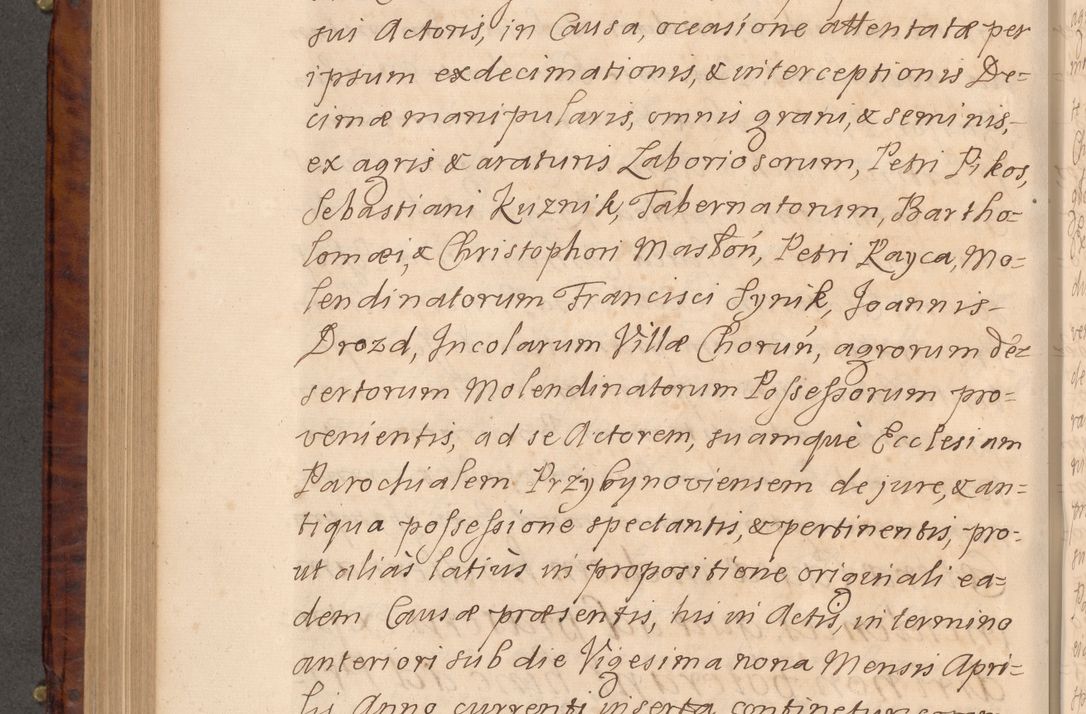 sui Actoris, in Causa, occasione attentatæ per
ipsum exdecimationis, & interceptionis De=
cimæ manipularis, omnis grani, & seminis,
ex agris & araturis Laboriosorum, Petri Pikos,
Sebastiani Kuznik, Tabernatorum, Bartho=
lomæi, & Christophori Mastoń, Petri Rayca, Mo=
lendinatorum Francisci Synik, Joannis
Drozd, Incolarum Villæ Choruń, agrorum de=
sertorum Molendinatorum Possessorum pro=
venientis, ad se Actorem, suamquè Ecclesiam
Parochialem Przybynoviensem de jure, & an=
tiqua possessione spectantis, & pertinentis, pro=
ut aliàs latiùs in propositione originali ea=
dem Causæ præsentis, his in Actis, in termino
anteriori sub die Vigesima nona Mensis Apri=
lis Anno currenti inserta continetur